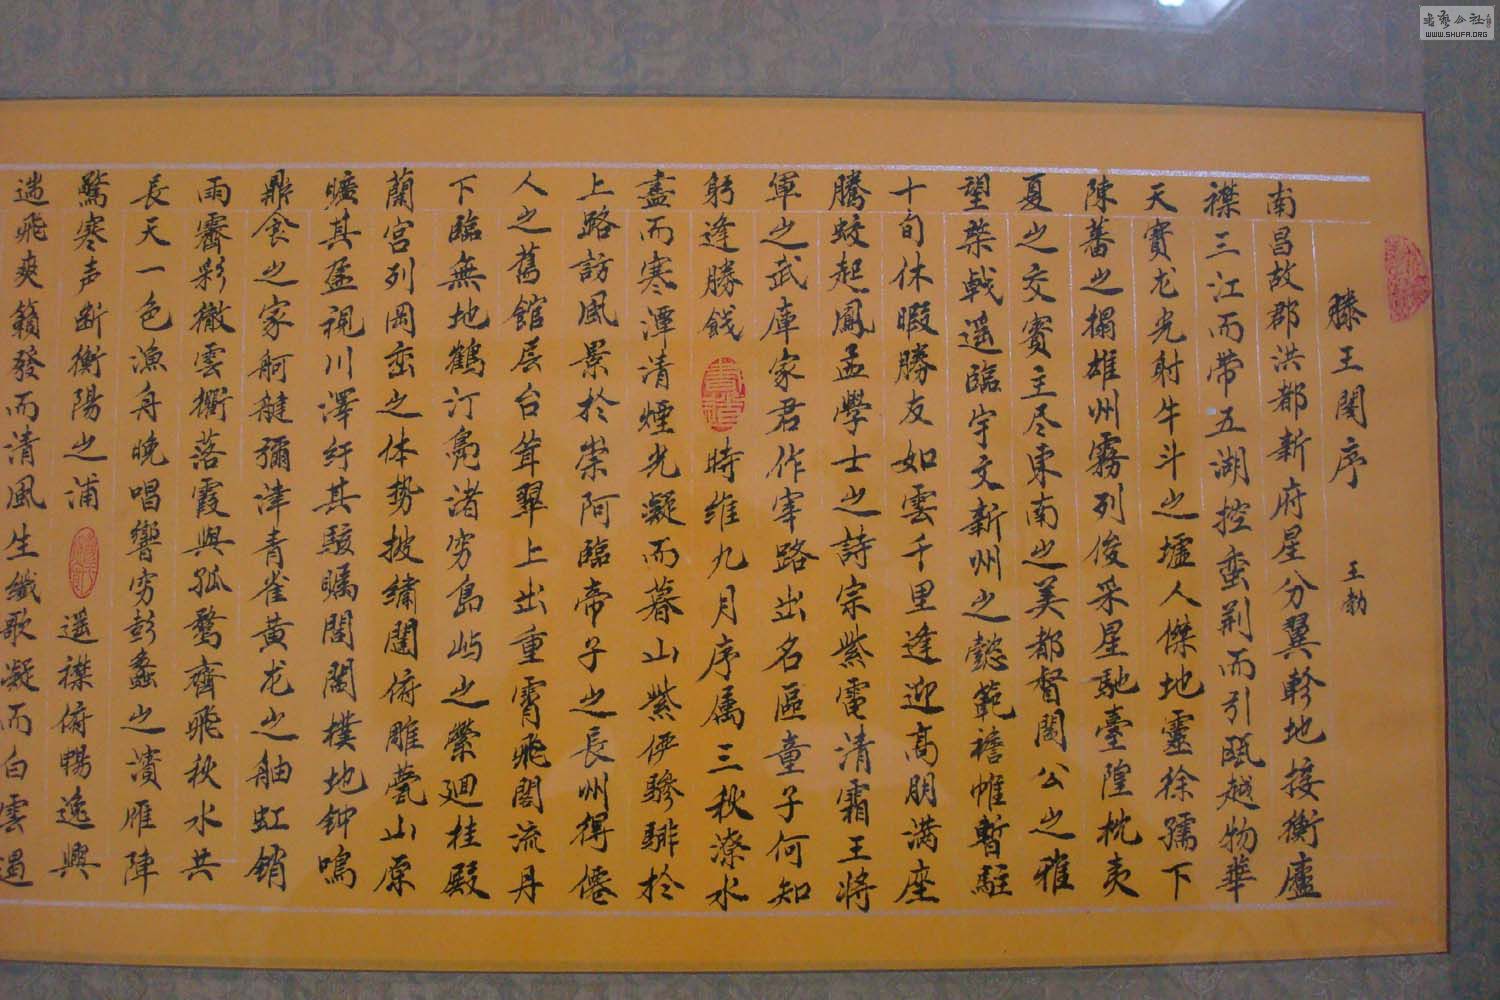 滕王閣序
王勃
南昌故郡洪都新府星分翼軫地接衡廬
襟三江而帶五湖控蛮荆而引瓯越物華
天寶龙光射牛斗之墟人傑地靈徐孺下
陳蕃之榻雄州霧列俊采星馳臺隍枕夷
夏之交賓主尽東南之美都督閻公之雅
望棨戟遥臨宇文新州之懿範襜帷暫駐
十旬休暇勝友如雲千里逢迎高朋满座
騰蛟起鳳孟學士之詩宗紫電清霜王将
軍之武庫家君作宰路出名區童子何知
躬逢勝餞時維九月序属三秋潦水
盡而寒潭清煙光凝而暮山紫俨驂騑於
上路訪風景於崇阿臨帝子之長州得僊
人之舊館层台耸翠上出重霄飛閣流丹
下臨無地鶴汀凫渚穷島屿之縈廻桂殿
蘭宮列岡峦之体势披繡闥俯雕甍山原
曠其盈視川澤纡其駭矚閭閻撲地钟鳴
鼎食之家舸艖彌津青雀黄龙之舳虹銷
雨霽彩徹雲衢落霞與孤鹜齊飛秋水共
長天一色漁舟晚唱響穷彭蠡之濱雁陣
驚寒声断衡陽之浦遥襟俯暢逸興
遄飛爽籟發而清風生纖歌凝而白雲遏
WWW.SHUFA.ORG